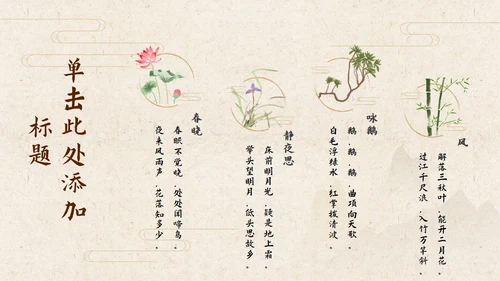 单击此处添加
标题
春晓
春眠不觉晓，处处闻啼鸟。
夜来风雨声，花落知多少。
静夜思
床前明月光，疑是地上霜。
举头望明月，低头思故乡。
咏鹅
鹅，鹅，鹅，曲项向天歌。
白毛浮绿水，红掌拨清波。
风
解落三秋叶，能开二月花。
过江千尺浪，入竹万竿斜。